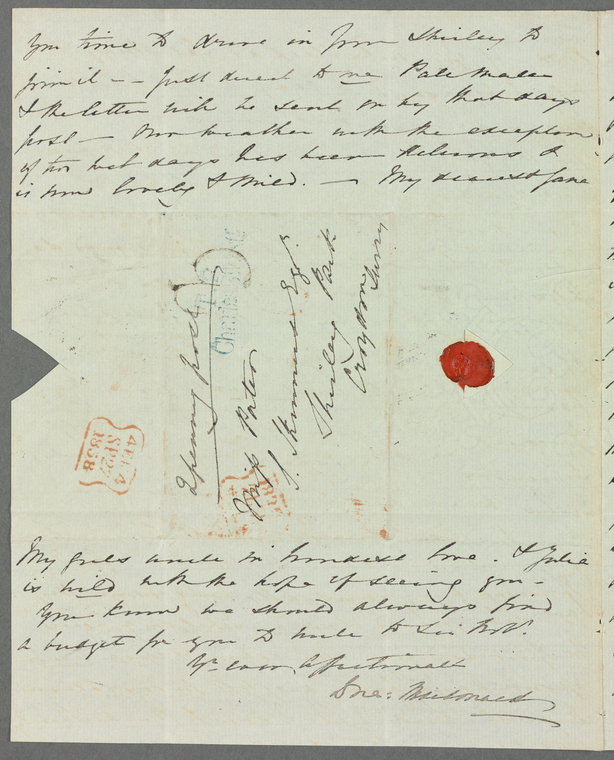 you time to drive in from Shirley to
join it — Just direct to me Pall Mall
& the letter will be sent on by that days
post — Our weather with the exception
of two wet days has been delicious &
is now lovely & mild. — My dearest Jane
2penny post
Miss Porter
S. Skinner Esqr.
Shirley Park
Croydon
Surry
4 EV 4
SP 27
1838
My girls unite in kindest love. & Julia
is wild with the hope of seeing you —
You know we should always find
a budget for you to to Sir Robt.
Yr ever affectionate
Macdonald